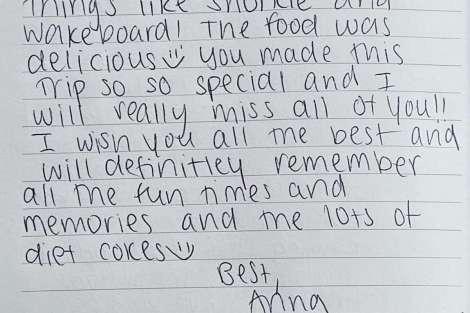 things like snorkle and
wakeboard! The food was
delicious☺ you made this
Trip so so special and I
will really miss all of you!!
I wish you all the best and
will definitley remember
all the fun times and
memories and the lots of
diet cokes☺
Best,
Anna